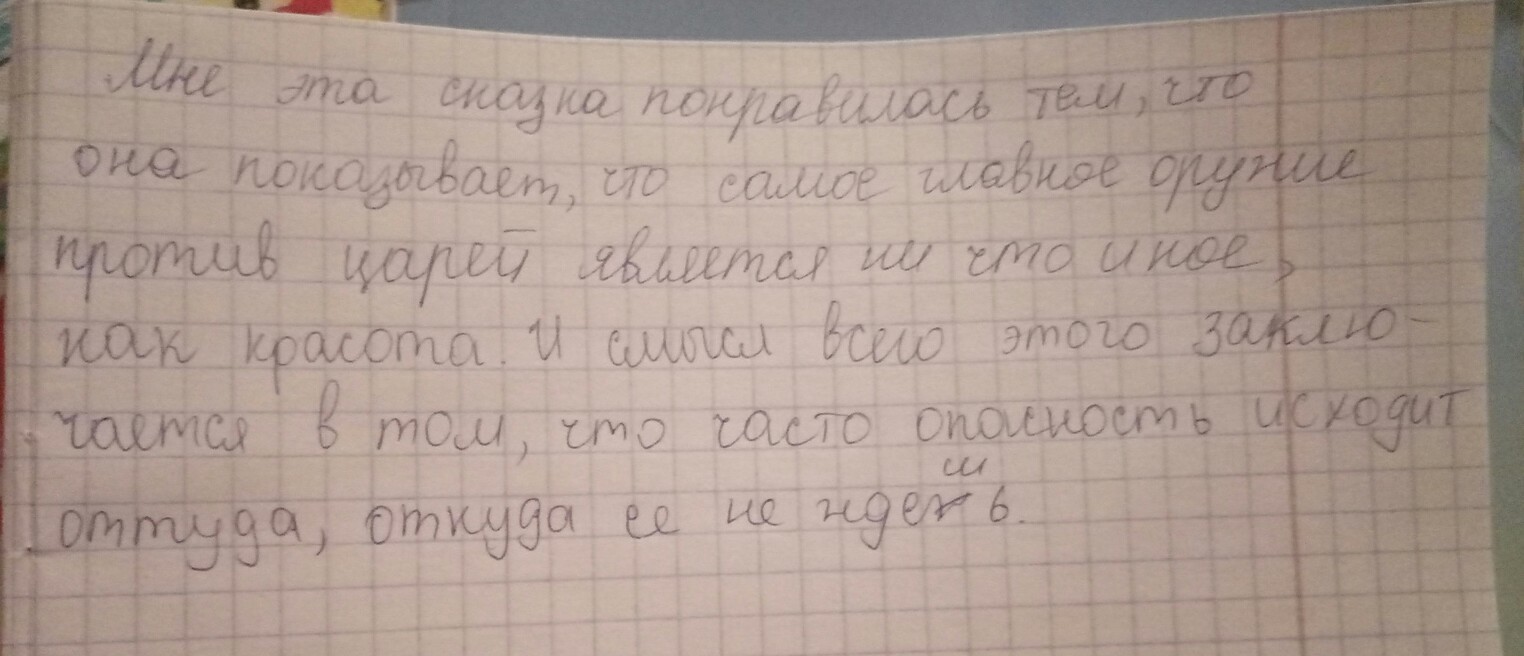 Мне эта сказка понравилась тем, что
она показывает, что самое главное оружие
против царей является ни что иное,
как красота. И смысл всего этого заклю-
чается в том, что часто опасность исходит
оттуда, откуда ее не ждешь.